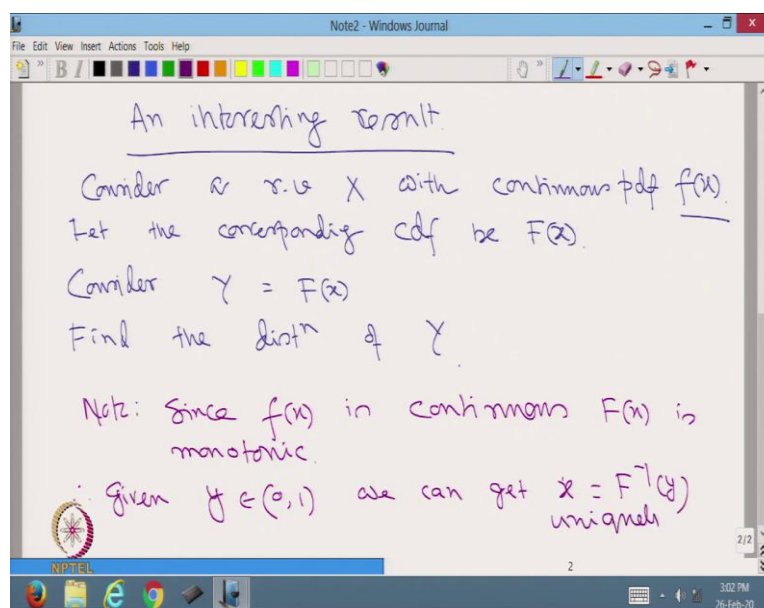 Note2 - Windows Journal
File Edit View Insert Actions Tools Help
B I
An interesting result.
Consider a r.v X with continuous pdf f(x).
Let the corresponding cdf be F(x).
Consider Y = F(x)
Find the distⁿ of Y.
Note: Since f(x) is continuous F(x) is
monotonic.
∴ given y ∈ (0,1) we can get x = F⁻¹(y)
uniquely
NPTEL
2
2/2
3:02 PM
26-Feb-20